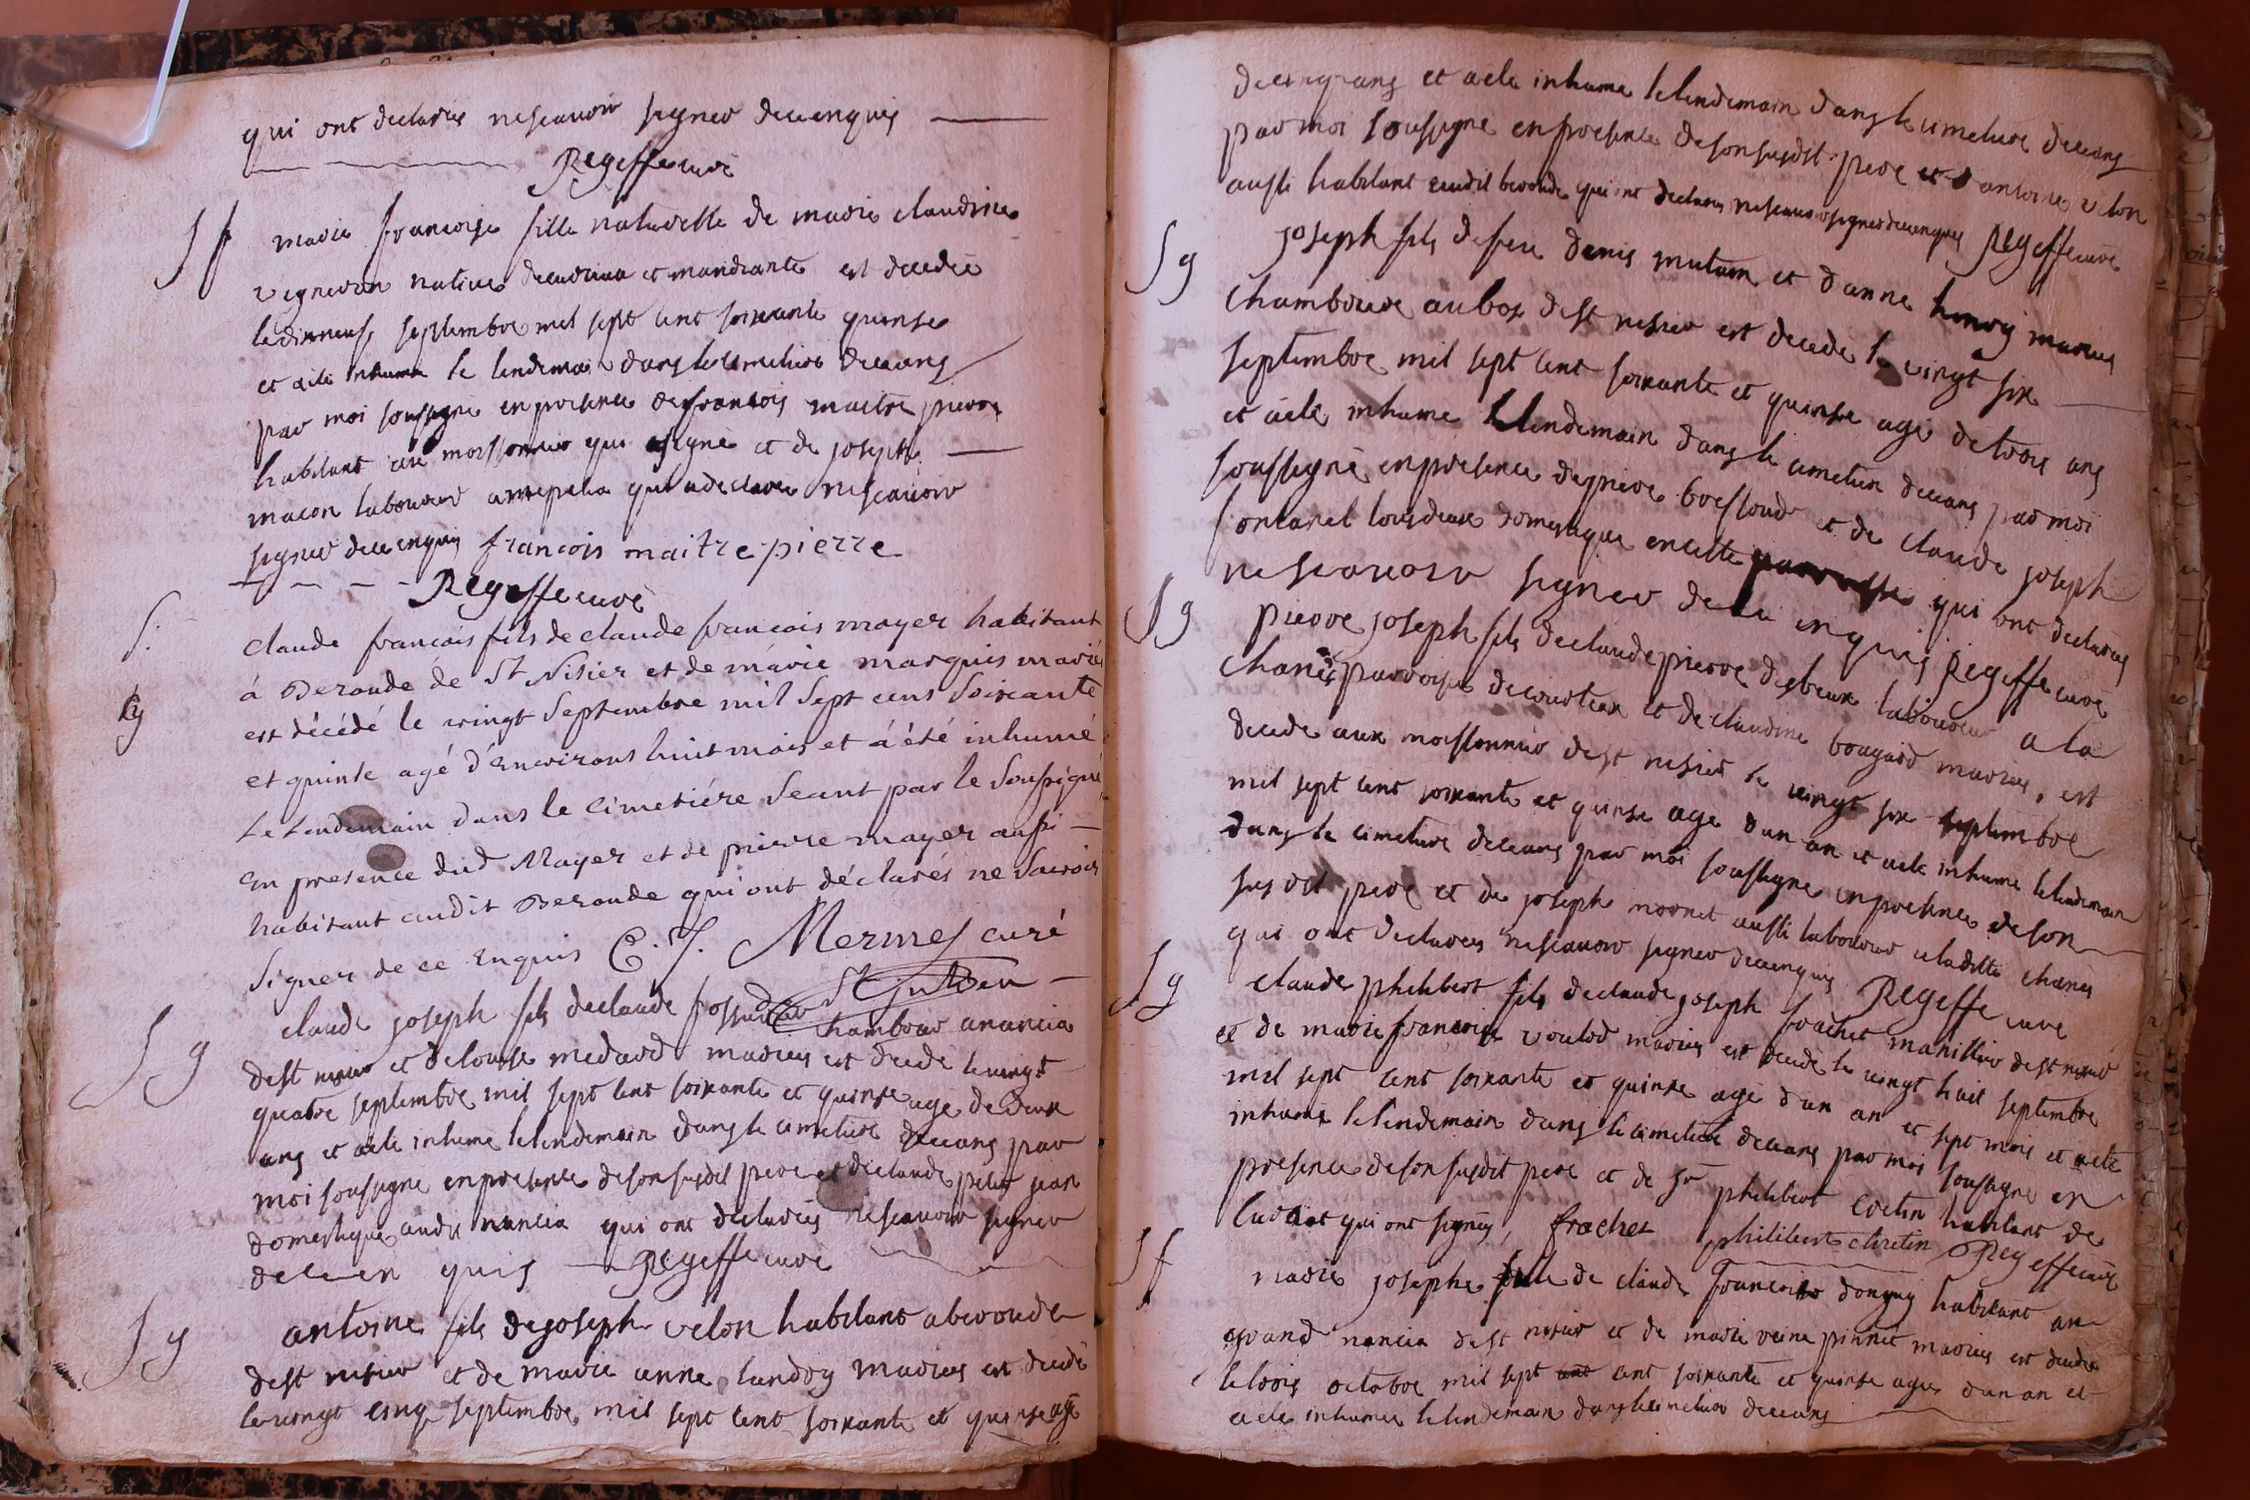 qui ont declarés nescavoir signer deceenquis
Regeffe curé
Sf
marie francoise fille naturelle de marie claudine
vigneron native et mandiante est decedée
ledixneuf septembre mil sept cent soixante quinse
et aété inhumé le lendemain dans lecimetiere deceans
par moi soussigné enpresence defrancois maitre pierre
habitant aux moissonnier qui asigné et de joseph
macon laboureur qui adeclaré nescavoir
signer deceenquis francois maitre-pierre
Regeffe curé
S.
g
claude francois fils de claude francois mayer habitant
á Beroude de St Nisier et de marie marquis mariés
est décédé le vingt Septembre mil Sept cens Soixante
et quinse agé d'Environs huit mois et á été inhumé
Le Lendemain dans le Cimetiére Seant par le Soussigné
En presence dud Mayer et de pierre mayer aussi
habitant audit Beroude qui ont déclarés ne Savoir
Signer de ce Enquis C. J. Mermes curé
de St Julien
Sg
claude joseph fils declaude joseph chambour anancia
dest nisier et delouise medard mariés est decedé levingt
quatre septembre mil sept cent soixante et quinse agé de deux
ans et aété inhumé lelendemain dans le cimetiere deceans par
moi soussigné enpresence desonsusdit pere et declaude petit jean
domestique audit nancia qui ont declarés nescavoir signer
deceenquis Regeffe curé
Sg
antoine fils dejoseph velon habitant aberoude
dest nisier et de marie anne landry mariés est decedé
levingt cinq septembre mil sept cent soixante et quinse agé
decinq ans et aété inhumé lelendemain dans lecimetiere deceans
par moi soussigné enpresence desonsusdit pere et d antoine velon
aussi habitant audit beroude qui ont declarés nescavoir signer deceenquis Regeffe curé
Sg
joseph fils defeu denis mutain et d anne henry mariés
chambriere aubos dest nisier est decedé le vingt six
septembre mil sept cent soixante et quinse agé detrois ans
et aété inhumé lelendemain dans le cimetiere deceans par moi
soussigné enpresence depierre broissoud et de claude joseph
fontanel tousdeux domestique encette parroisse qui ont declarés
nescavoir signer de ce enquis Regeffe curé
Sg
pierre joseph fils declaudepierre desbeux laboureur a la
chanée parroisse decourteau et de claudine bougard mariés, est
decedé aux moissonnier dest nisier le vingt six septembre
mil sept cent soixante et quinse agé dun an et aété inhumé lelendemain
dans le cimetiere deceans par moi soussigné enpresence deson
susdit pere et de joseph moornet aussi laboureur aladitte chanée
qui ont declarés nescavoir signer deceenquis Regeffe curé
Sg
claude philibert fils declaude joseph frachet manillier dest nisier
et de marie francoise voulod mariés est decedé le vingt huit septembre
mil sept cent soixante et quinse agé dun an et sept mois et aété
inhumé lelendemain dans lecimetiere deceans par moi soussigné en
presence desonsusdit pere et de Sr philibert cretin habitant de
curciat qui ont signés, frachet philibert chretin Regeffe curé
Sf
marie josephe fille de claude francois donguy habitant au
grand nancia dest nisier et de marie reine pinnet mariés est decedée
letrois octobre mil sept cent soixante et quinse agée dun an et
aété inhumée lelendemain danslecimetiere deceans